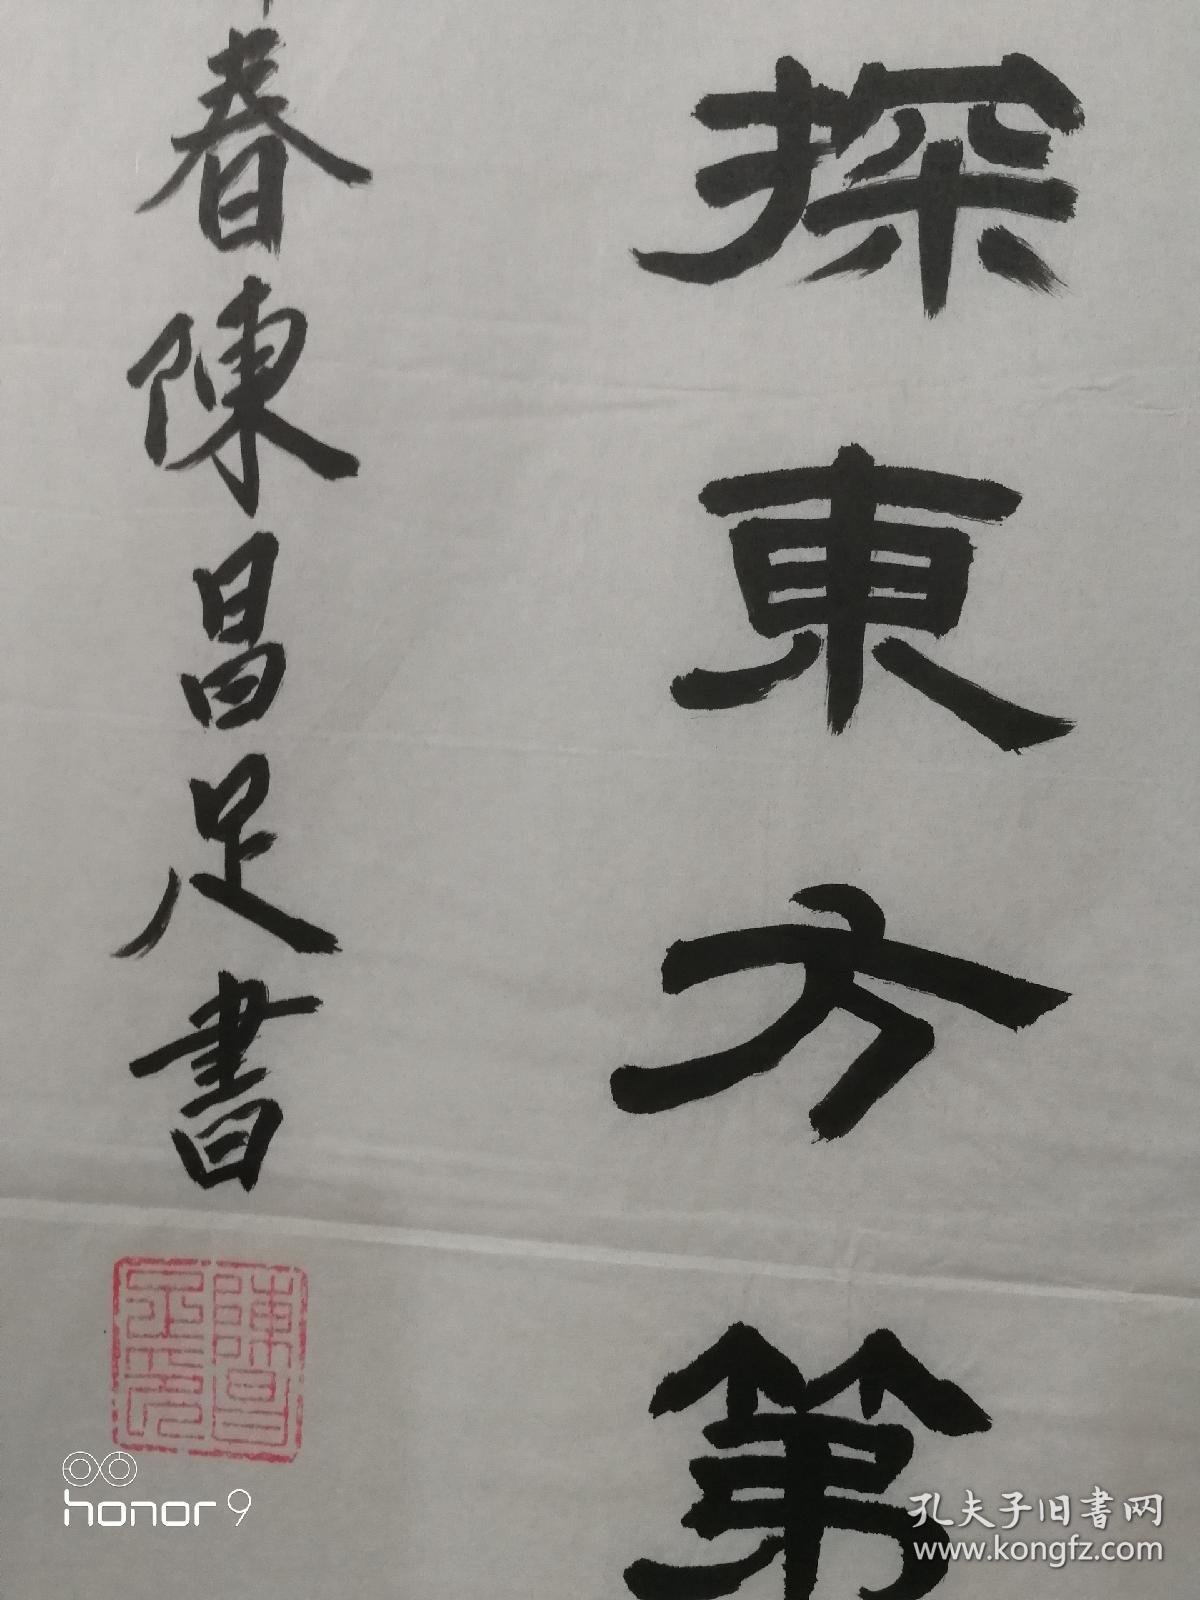 探東方第
春陳昌足書
honor 9
孔夫子旧書网
www.kongfz.com